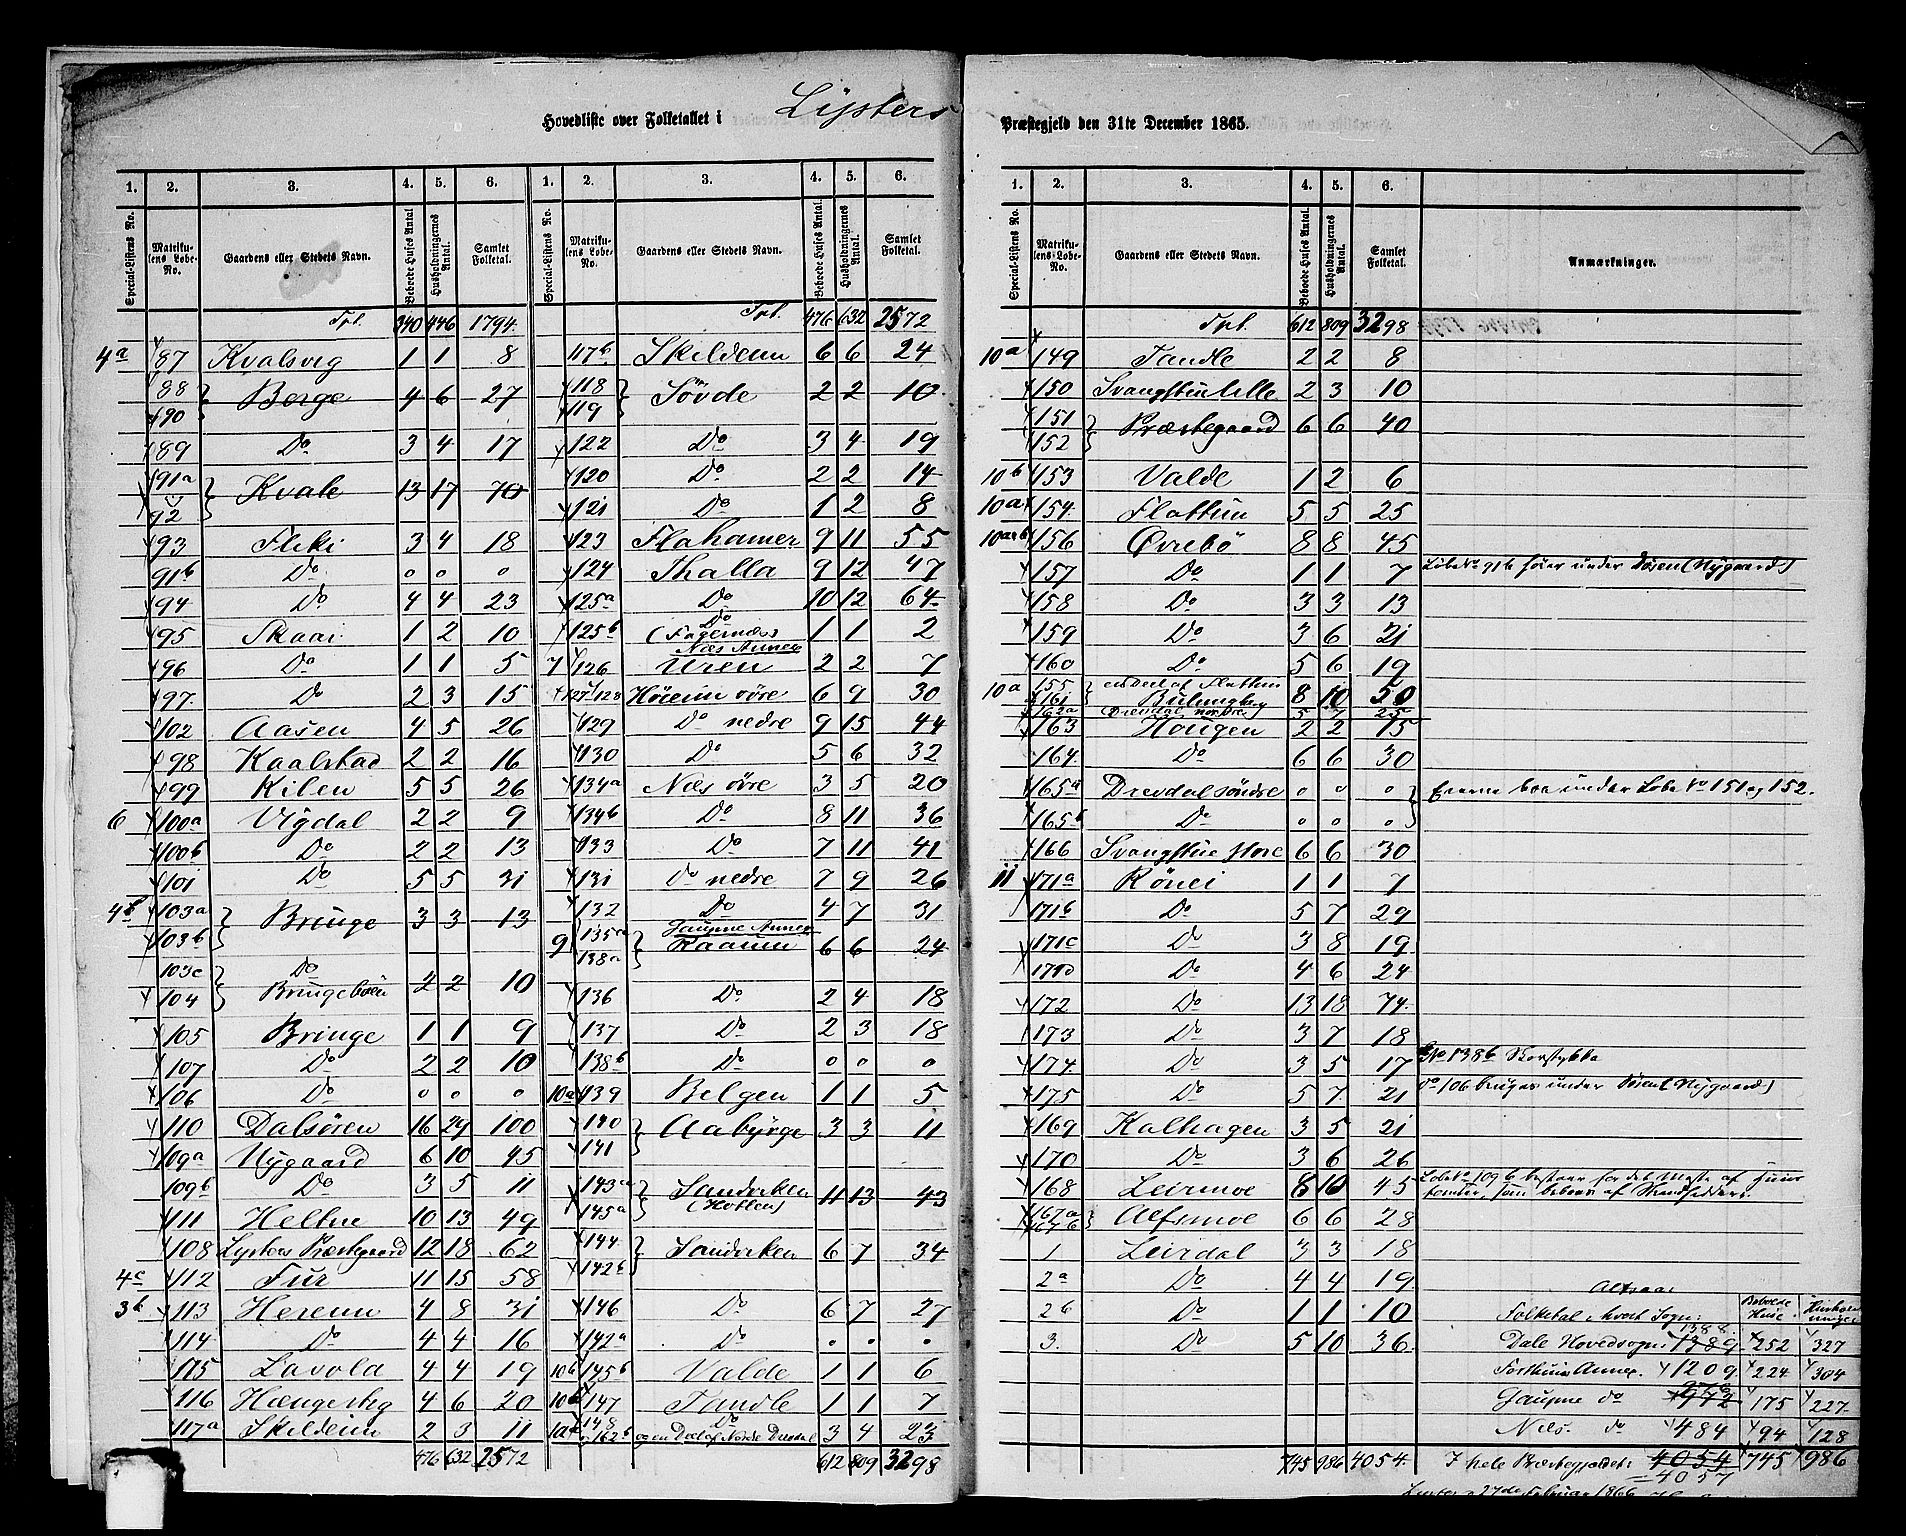 Hovedliste over Folketallet i Lysters Præstegjeld den 31te December 1865.
1. 2. 3. 4. 5. 6.
Special-Listens No. Matrikulens Løbe-No. Gaardens eller Stedets Navn. Beboede Huses Antal. Husholdningernes Antal. Samlet Folketal.
Tpt. 340 446 1794
4a 87 Kvalsvig 1 1 8
88 90 } Berge 4 6 27
89 Do 3 4 17
91a 92 } Kvale 13 17 70
93 Fleki 3 4 18
91b Do 0 0 0
94 Do 4 4 23
95 Skaai 1 2 10
96 Do 1 1 5
97 Do 2 3 15
102 Aasen 4 5 26
98 Kaalstad 2 2 16
99 Kilen 5 5 26
6 100a Vigdal 2 2 9
100b Do 2 2 13
101 Do 5 5 31
4b 103a 103b } Bringe 3 3 13
103c 104 } Do Bringebøen 2 2 10
105 Bringe 1 1 9
107 Do 2 2 10
106 Do 0 0 0
110 Dalsøren 16 29 100
109a Nygaard 6 10 45
109b Do 3 5 11
111 Heltne 10 13 49
108 Lysters Præstegaard 12 18 62
4c 112 Fur 11 15 58
3b 113 Hereim 4 8 31
114 Do 4 4 16
115 Lavold 4 4 19
116 Hængerheg 4 6 20
117a Skildeim 2 3 11
476 632 2572
1. 2. 3. 4. 5. 6.
Special-Listens No. Matrikulens Løbe-No. Gaardens eller Stedets Navn. Beboede Huses Antal. Husholdningernes Antal. Samlet Folketal.
Tpt. 476 632 2572
117b Skildeim 6 6 24
118 119 } Søvde 2 2 10
122 Do 3 4 19
120 Do 2 2 14
121 Do 1 2 8
123 Flahamer 9 11 55
124 Thalla 9 12 47
125a Do 10 12 64
125b Do (Fagernæs) 1 1 2
Næs Annex
7 126 Uren 2 2 7
127 128 Høieim øvre 6 9 30
129 Do nedre 9 15 44
130 Do 5 6 32
134a Næs øvre 3 5 20
134b Do 8 11 36
133 Do 7 11 41
131 do nedre 7 9 26
132 Do 4 7 31
Gaupne Annex
9 135a 138a } Raaum 6 6 24
136 Do 2 4 18
137 Do 2 3 18
138b Do 0 0 0
10a 139 Belgen 1 1 5
140 141 } Aabyrge 3 3 11
143a 145a } Sandviken (Hotlen) 11 13 43
144 142b } Sandviken 6 7 34
146 Do 6 7 27
142a Do 0 0 0
10b 145b Valde 1 1 6
10b 147 Tandle 1 1 7
10a 148 og 162b Do og en Deel af Nordre Dresdal 3 4 23
612 809 3298
1. 2. 3. 4. 5. 6.
Special-Listens No. Matrikulens Løbe-No. Gaardens eller Stedets Navn. Beboede Huses Antal. Husholdningernes Antal. Samlet Folketal. Anmærkninger.
Tpt. 612 809 3298
10a 149 Tandle 2 2 8
150 Svangstue lille 2 3 10
151 152 } Præstegaard 6 6 40
10b 153 Valde 1 2 6
10a 154 Flattun 5 5 25
10a+b 156 Øvrebø 8 8 45
157 Do 1 1 7 Løbe No 91b høier under Døsen (Nygaard)
158 Do 3 3 13
159 Do 3 6 21
160 Do 5 6 19
10a 155 161 } en deel af Flattun 8 10 50
162a Dresdal nordre 5 7 25
163 Hougen 2 2 15
164 Do 6 6 30
165a Dresdal søndre 0 0 0 } Eierne boe under Løbe No 151 og 152.
165b Do 0 0 0
166 Svangstue store 6 6 30
11 171a Rønei 1 1 7
171b Do 5 7 29
171c Do 3 8 19
171d Do 4 6 24
172 Do 13 18 74
173 Do 3 7 18
174 Do 3 5 17 No 138b Skovstykke
175 Do 5 7 21 do 106 bruges under Døsen (Nygaard)
169 Kalhagen 3 5 21
170 Do 3 6 26
168 Leirmoe 8 10 45 Løbe No 109b bestaar for det meste af Huus tomter, som beboes af Strandsiddere.
167a 167b } Alfsmoe 6 6 28
1 Leirdal 3 3 18
2a Do 4 4 19
2b Do 1 1 10
3. Do 5 10 36
745 986 4054
Altsaa:
Folketal i hvert Sogn: Beboede Huse Husholdninger
Dale Hovedsogn: 1388 1389 252 327
Forthun Annex. 1209 224 304
Gaupne do 972 175 227
Næs. do 484 94 128
I hele Præstegjeldet: 4054 745 986
4057
Lyster 27de Februar 1866